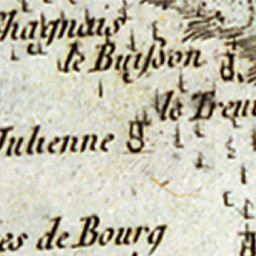 Chagnais
le Buisson
le Treu
Julienne
es de Bourg